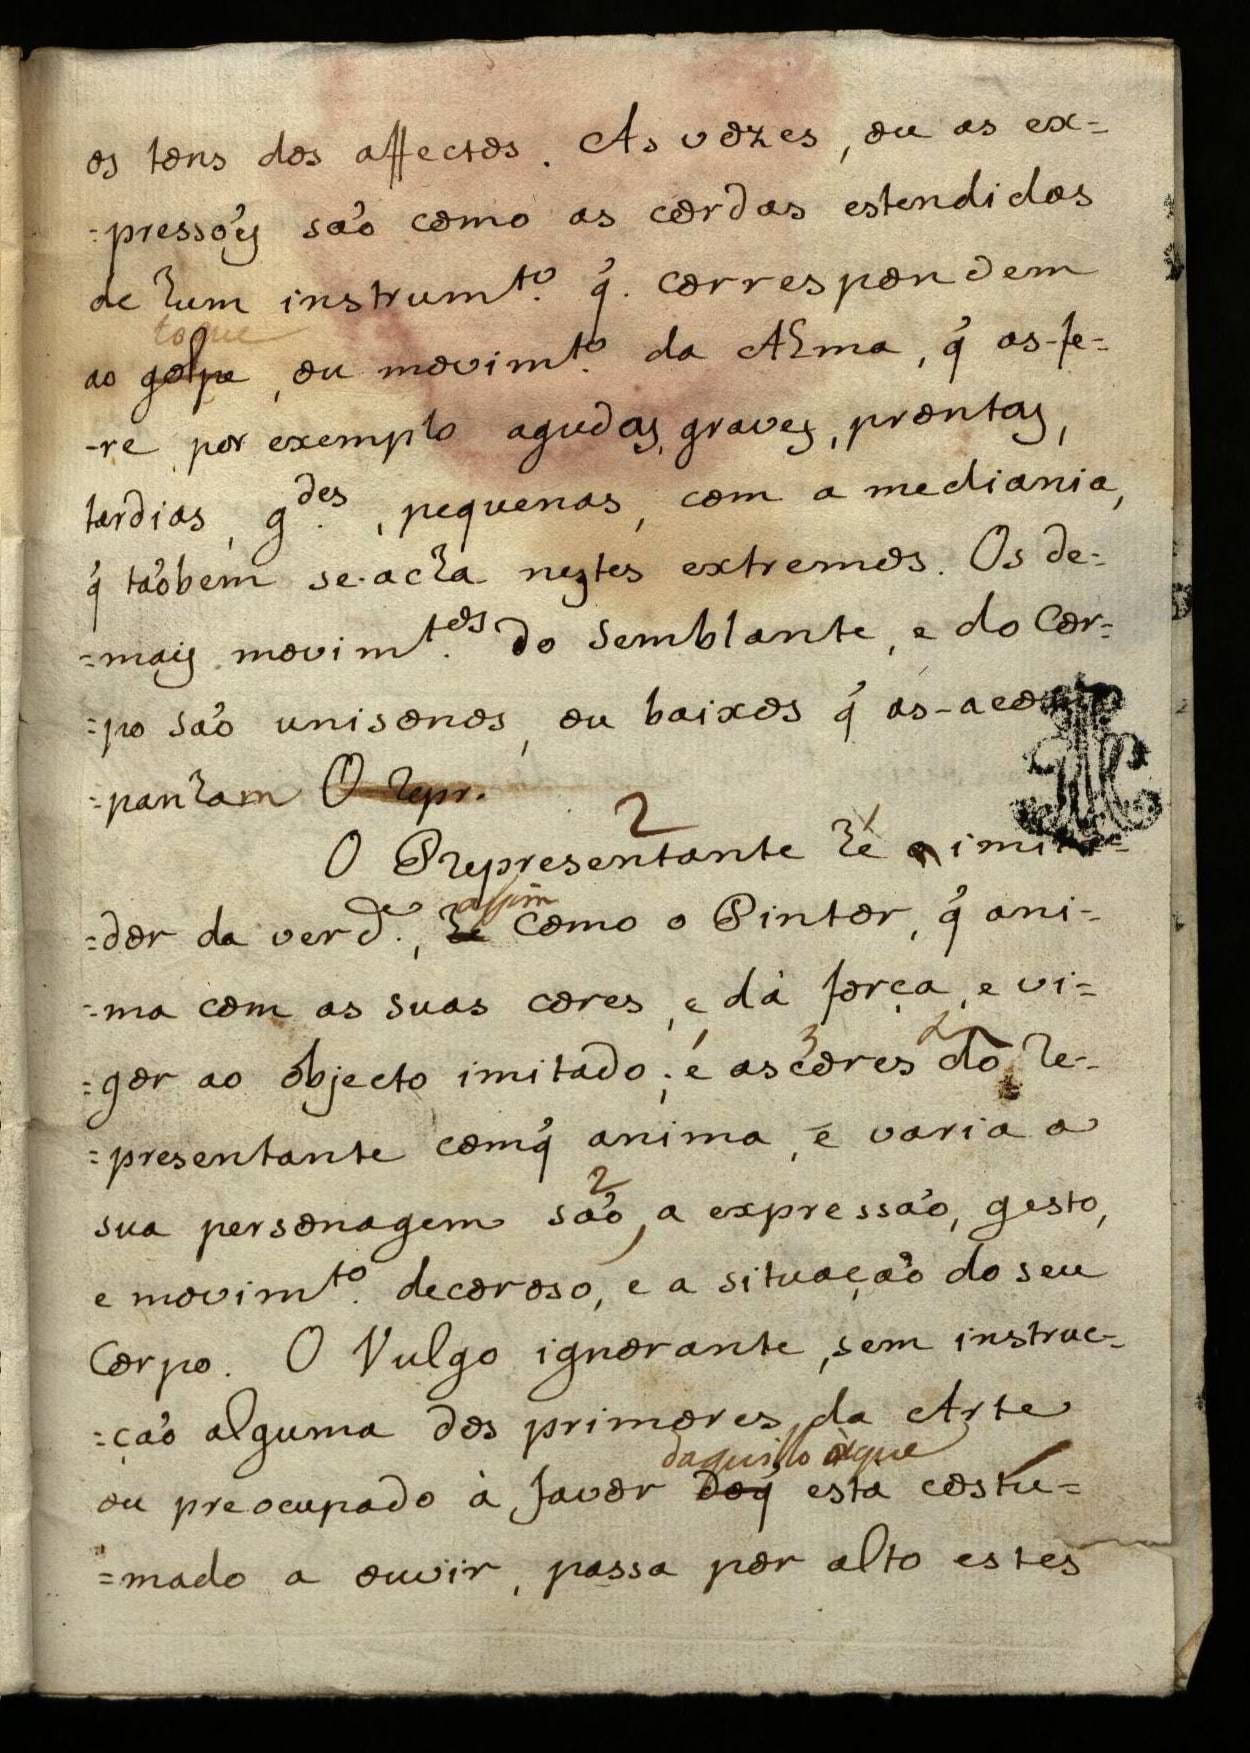 os tons dos affectos. As vozes, ou as ex=
=pressoẽs saõ como as cordas estendidas
de hum instrumto. q̃. correspondem
toque
ao golpe, ou movimto. da Alma, q̃ as-fe=
-re por exemplo agudas, graves, prontas,
tardias, gdes., pequenas, com a mediania,
q̃ taõbem se-acha nestes extremos. Os de=
=mais movimtos. do semblante, e do Cor=
=po saõ unisonos, ou baixos q̃ as-acom
=panham O repr.
2
O Representante hé o imita=
assim
=dor da verde., hé como o Pintor, q̃ ani=
=ma com as suas cores, e dá força, e vi=
3 2
=gor ao objecto imitado; é as cores do Re=
=presentante comq̃ anima, e varia a
2
sua personagem saõ, a expressaõ, gesto,
e movimto. decoroso, e a situaçaõ do seu
Corpo. O Vulgo ignorante, sem instruc=
=çaõ alguma dos primores, da Arte
daquillo àque
ou preocupado à favor doq̃ esta costu=
=mado a ouvir, passa por alto estes